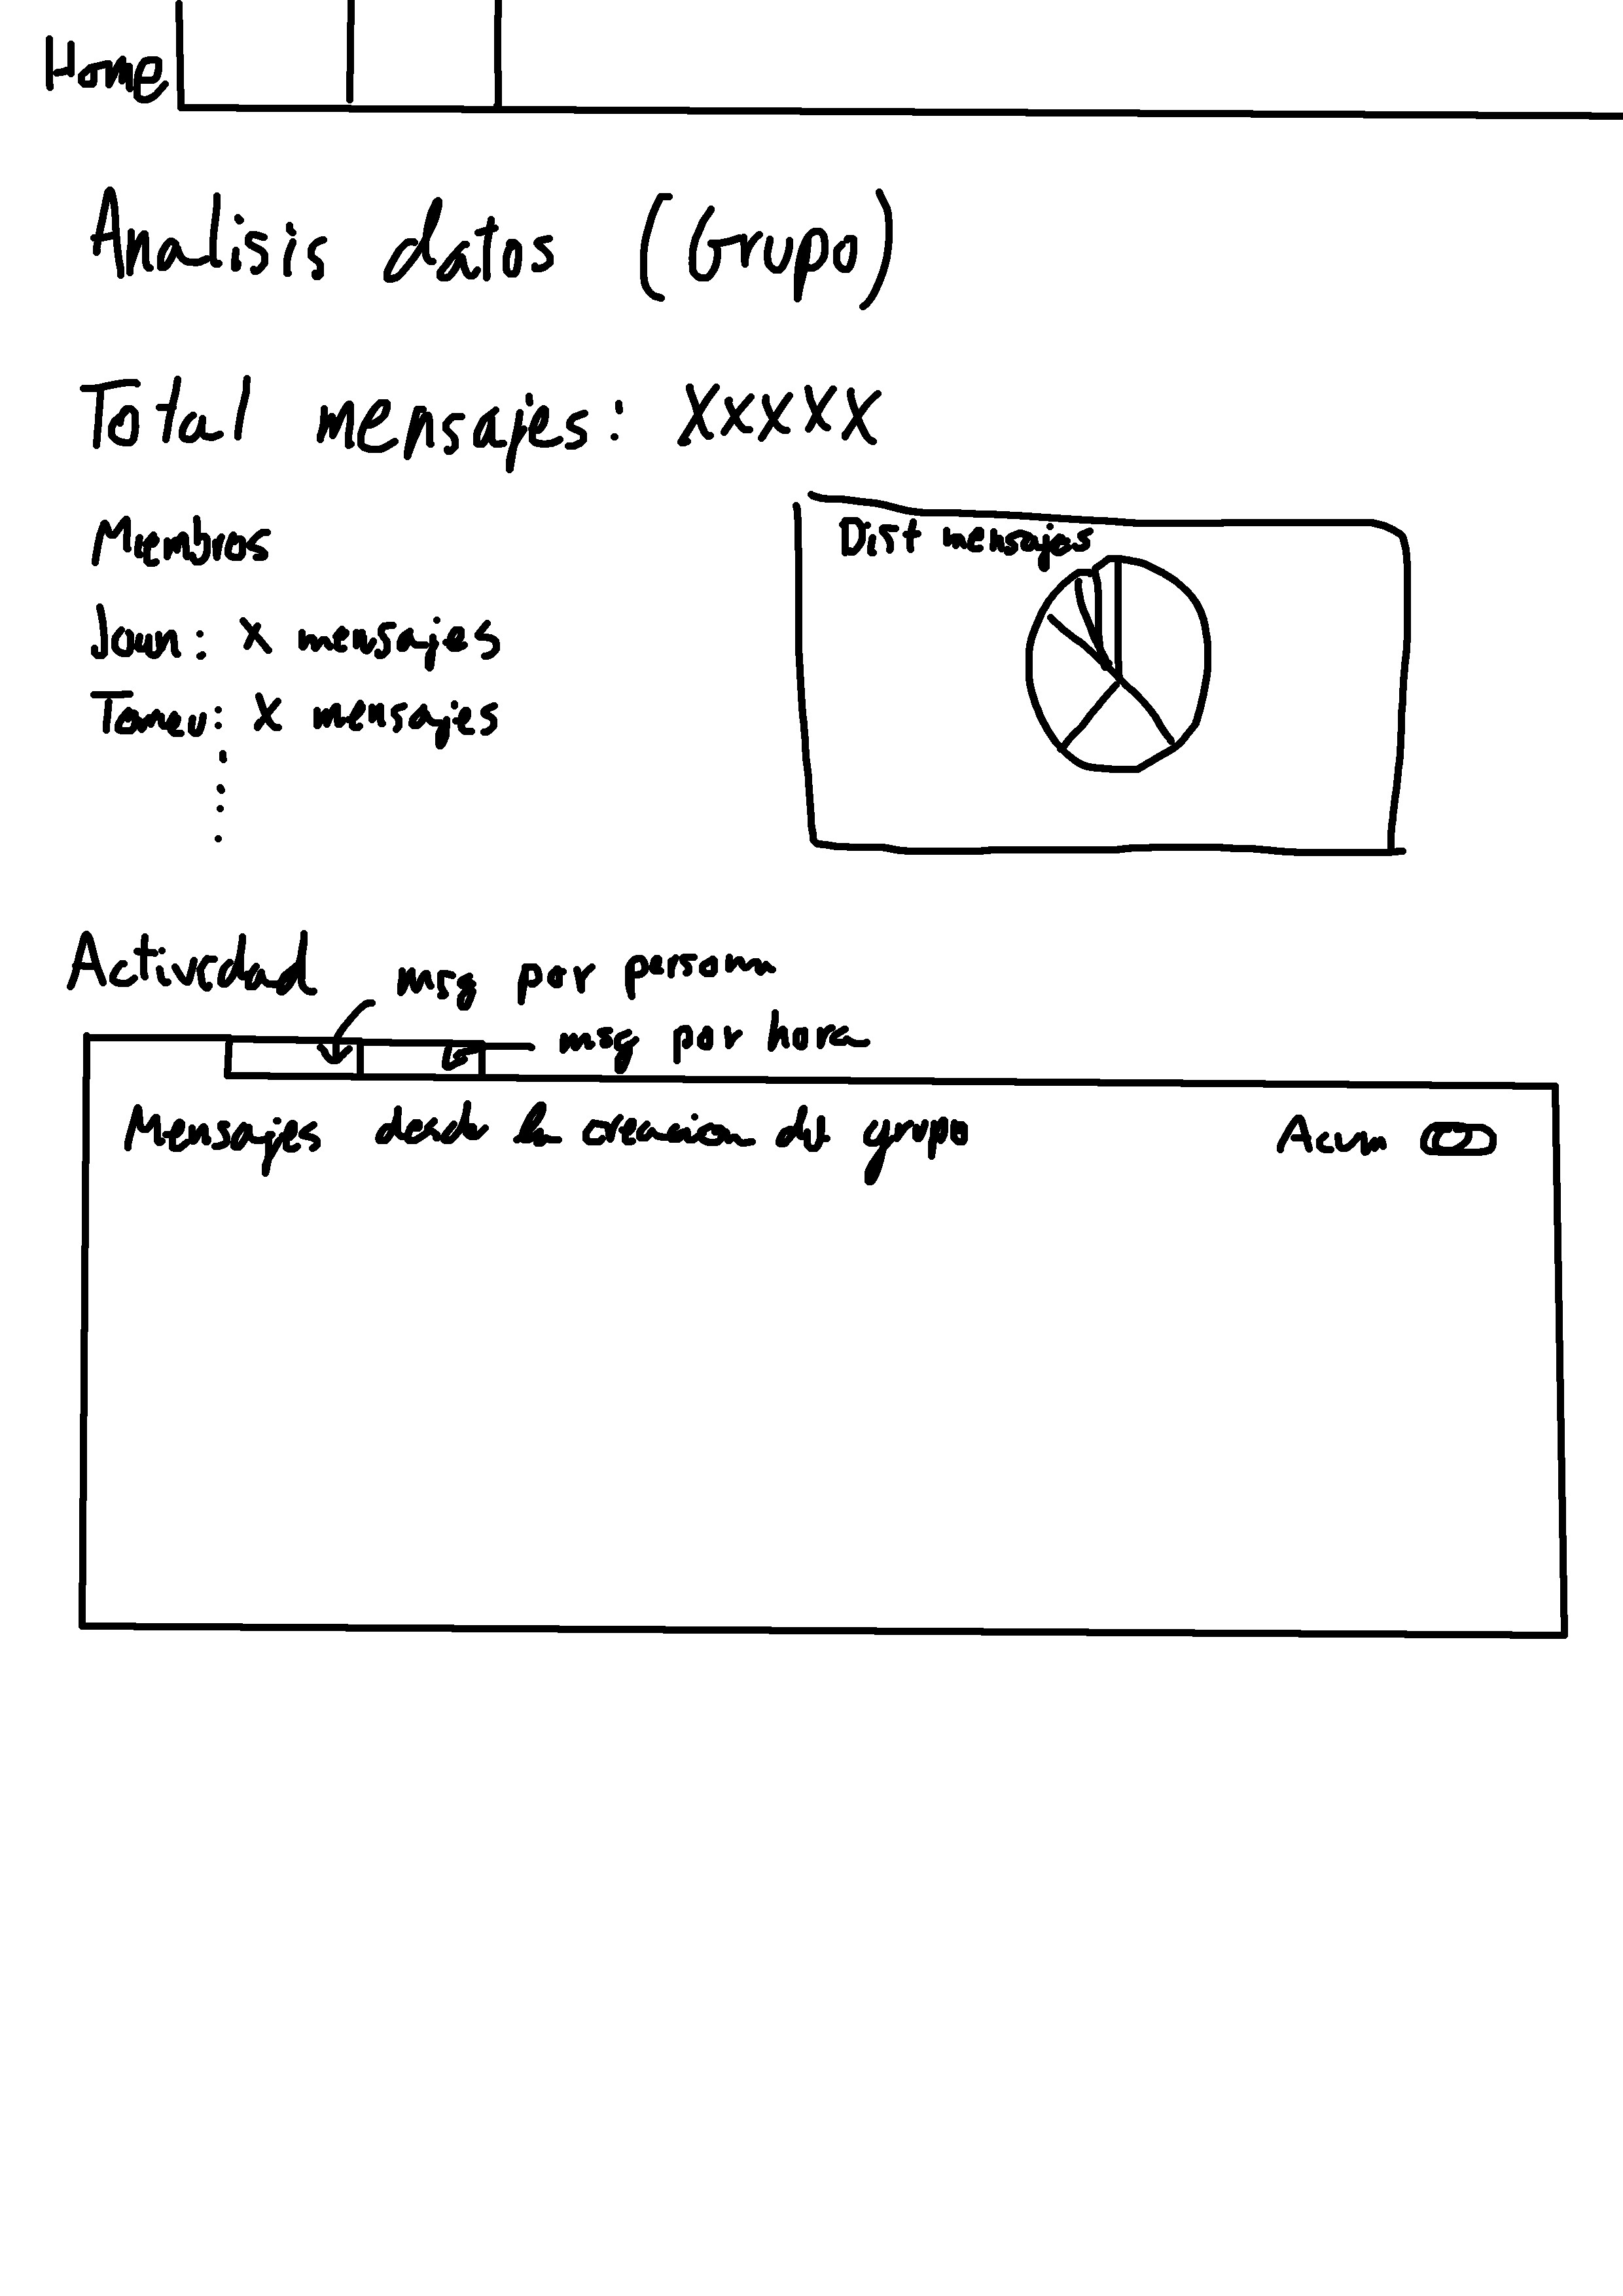 Home
Analisis datos (Grupo)
Total mensajes: XXXXX
Miembros
Dist mensajes
Joan: X mensajes
Tomeu: X mensajes
Actividad
msg por persona
msg por hora
Mensajes desde la creacion del grupo
Acum